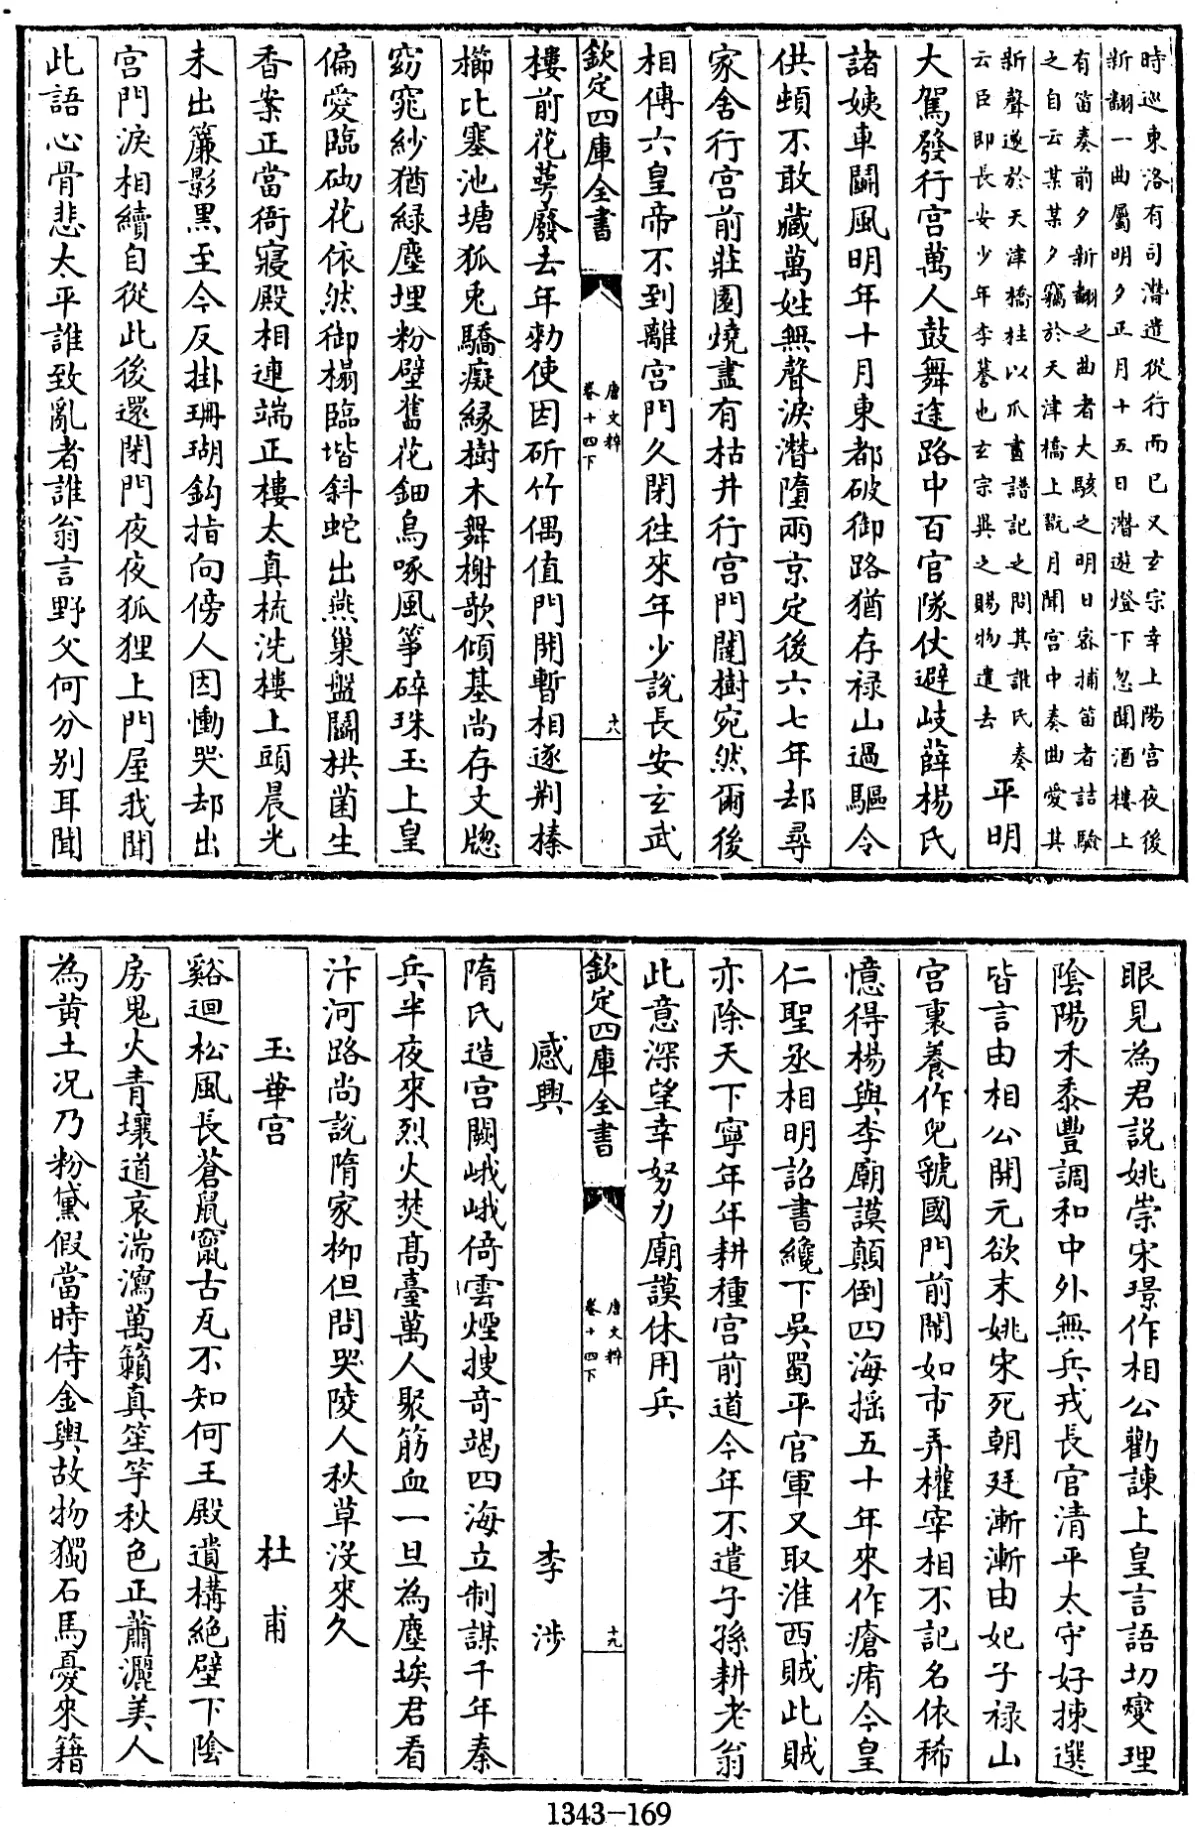 時巡東洛有司潛遣從行而已又玄宗幸上陽宮夜後
新翻一曲屬明夕正月十五日潛遊燈下忽聞酒樓上
有笛奏前夕新翻之曲者大駭之明日密捕笛者詰驗
之自云某某夕竊於天津橋上翫月聞宮中奏曲愛其
新聲遂於天津橋柱以爪畫譜記之問其誰氏奏
云臣即長安少年李謩也玄宗異之賜物遣去
平明
大駕發行宮萬人鼓舞途路中百官隊仗避岐薛楊氏
諸姨車鬬風明年十月東都破御路猶存禄山過驅令
供頓不敢藏萬姓無聲淚潛墮兩京定後六七年却尋
家舍行宮前莊園燒盡有枯井行宮門闥樹宛然爾後
相傳六皇帝不到離宮門久閉往來年少說長安玄武
欽定四庫全書
唐文粹
卷十四下
十八
樓前花萼廢去年勑使因斫竹偶值門開暫相逐荆榛
櫛比塞池塘狐兎驕癡緣樹木舞榭歌傾基尚存文牕
窈窕紗猶綠塵埋粉壁舊花鈿鳥啄風箏碎珠玉上皇
偏愛臨砌花依然御榻臨堦斜蛇出燕巢盤鬬栱菌生
香案正當衙寢殿相連端正樓太真梳洗樓上頭晨光
未出簾影黑至今反掛珊瑚鈎指向傍人因慟哭却出
宮門淚相續自從此後還閉門夜夜狐狸上門屋我聞
此語心骨悲太平誰致亂者誰翁言野父何分別耳聞
眼見為君説姚崇宋璟作相公勸諫上皇言語切燮理
陰陽禾黍豐調和中外無兵戎長官清平太守好揀選
皆言由相公開元欲末姚宋死朝廷漸漸由妃子禄山
宮裏養作兒虢國門前鬧如市弄權宰相不記名依稀
憶得楊與李廟謨顛倒四海搖五十年來作瘡痏今皇
仁聖丞相明詔書纔下吳蜀平官軍又取淮西賊此賊
亦除天下寧年年耕種宮前道今年不遣子孫耕老翁
此意深望幸努力廟謨休用兵
欽定四庫全書
唐文粹
卷十四下
十九
感興　李涉
隋氏造宮闕峨峨倚雲煙搜奇竭四海立制謀千年秦
兵半夜來烈火焚高臺萬人聚筋血一旦為塵埃君看
汴河路尚說隋家栁但問哭陵人秋草沒來久
玉華宮　杜甫
谿迴松風長蒼鼠竄古瓦不知何王殿遺構絕壁下陰
房鬼火青壞道哀湍瀉萬籟真笙竽秋色正蕭灑美人
為黄土况乃粉黛假當時侍金輿故物獨石馬憂來籍
1343-169